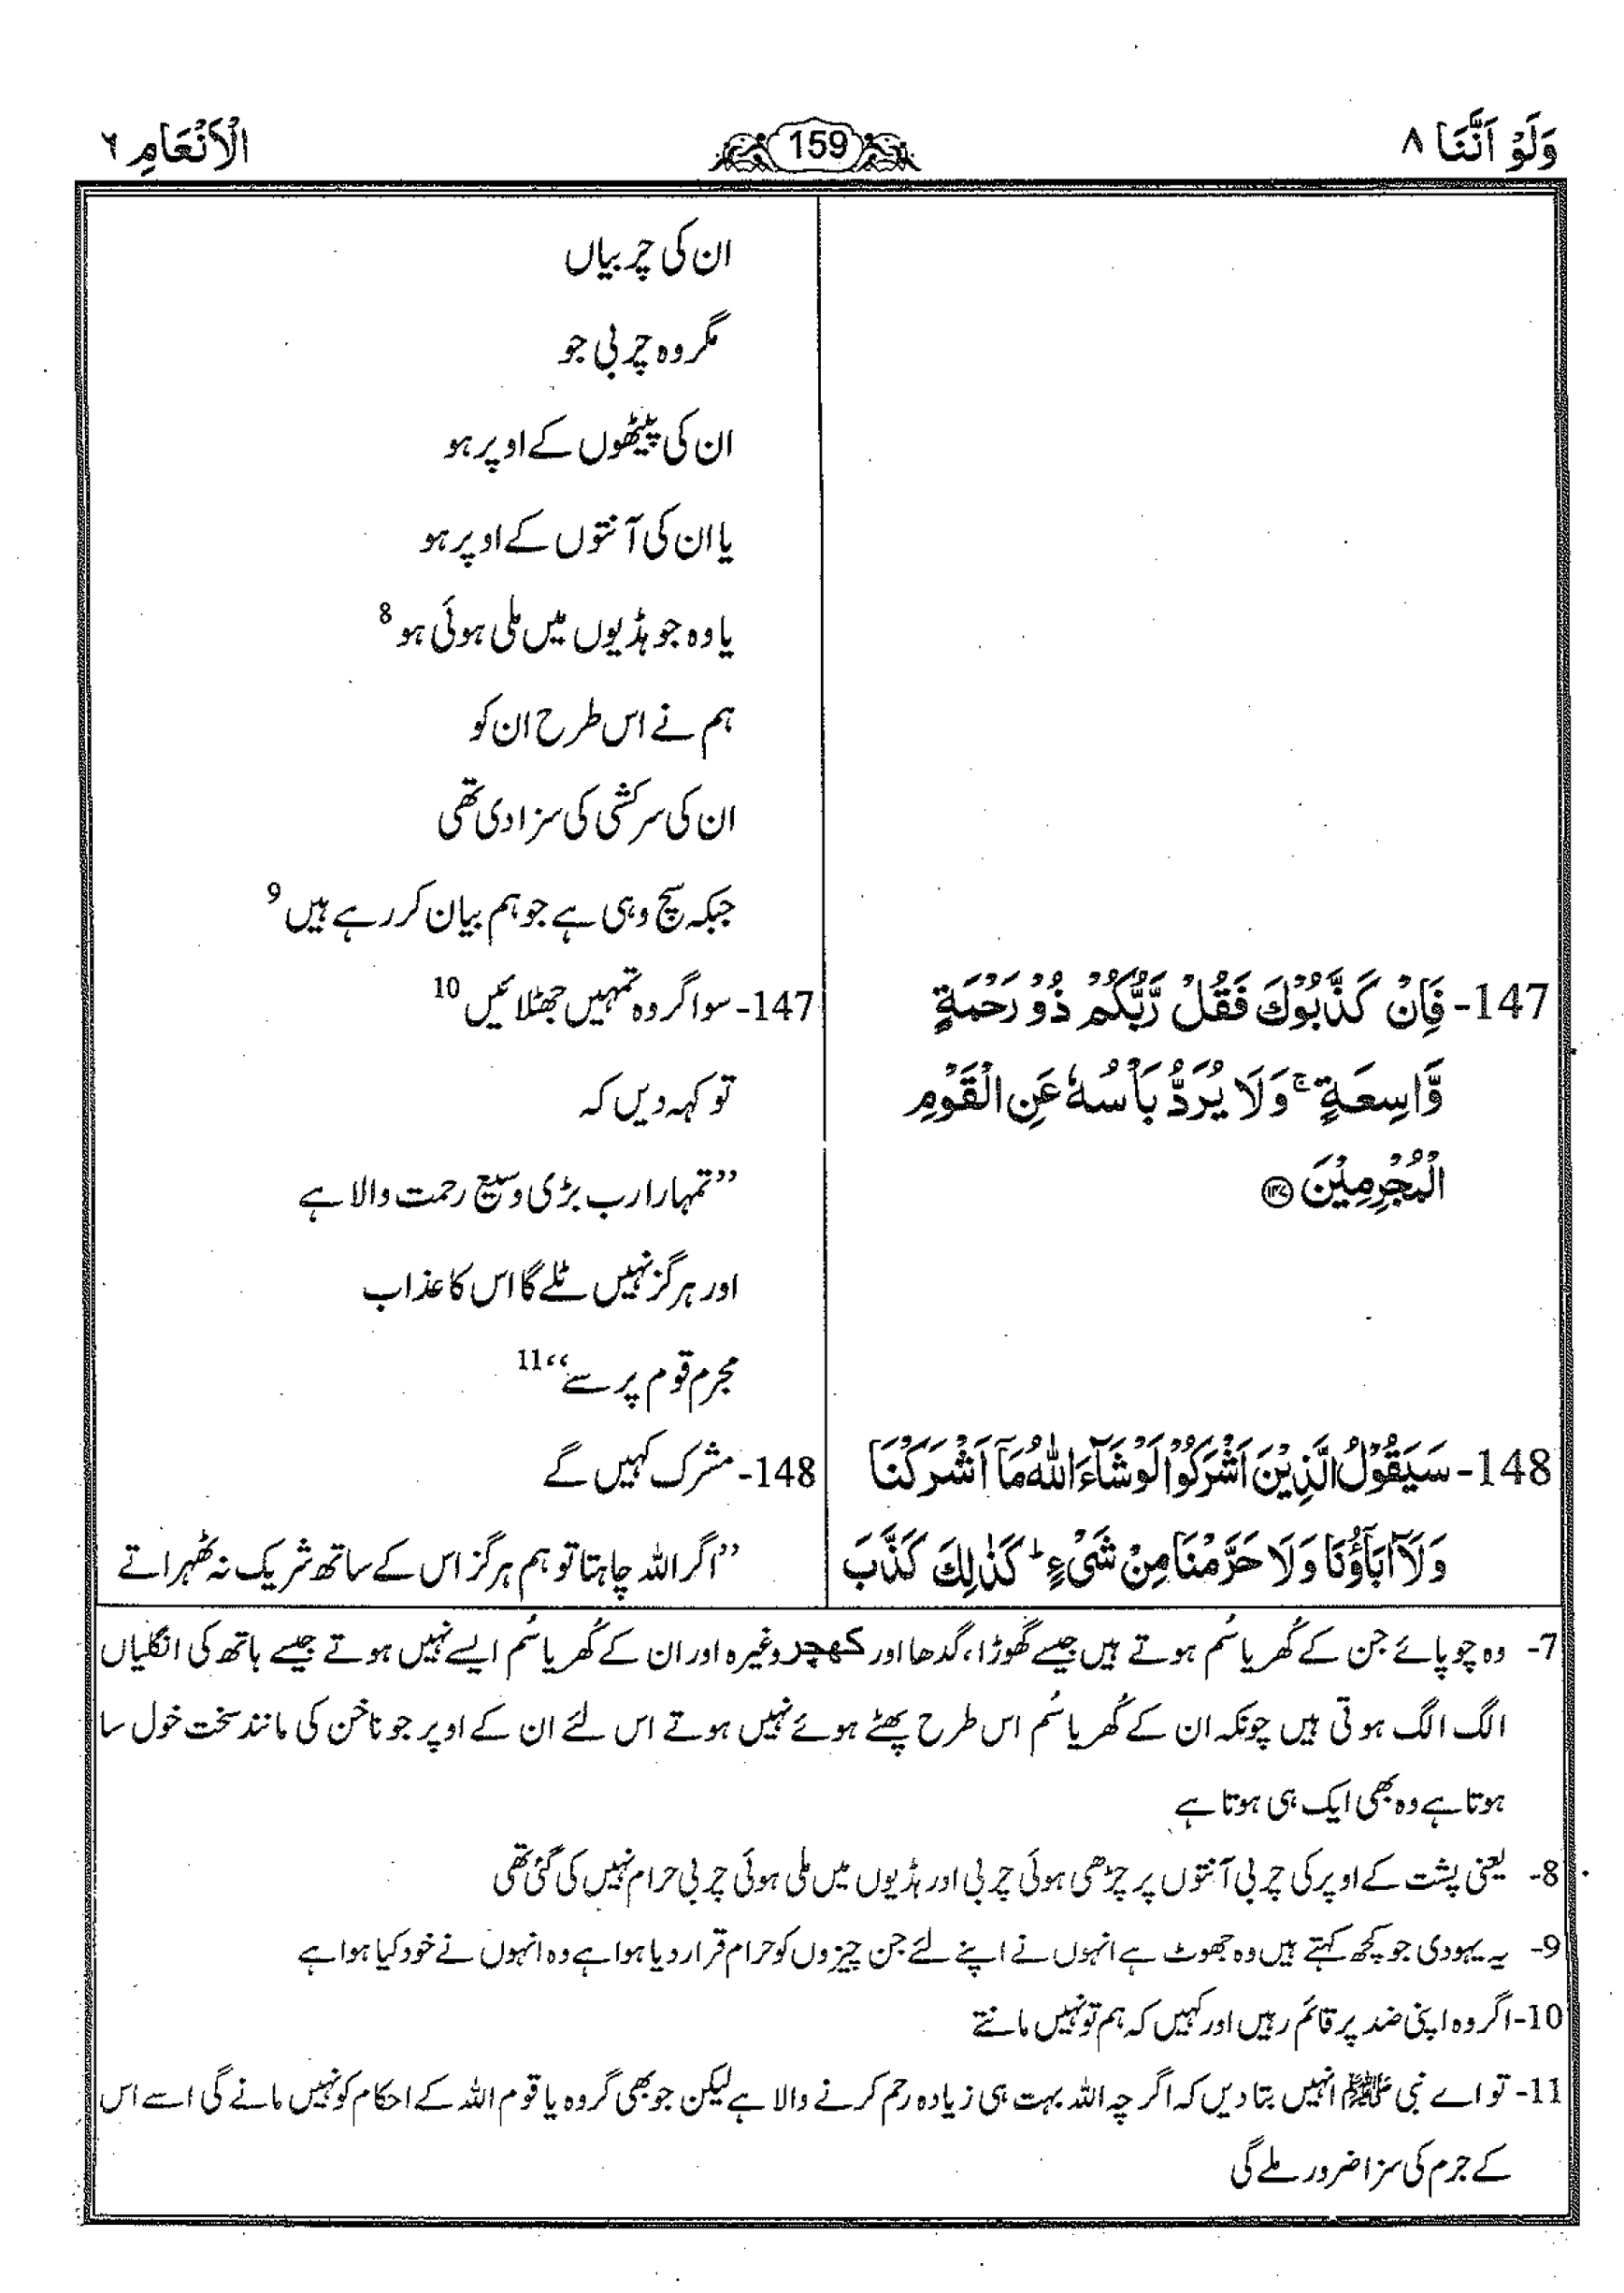 وَلَوْ اَنَّنَا ٨
159
الْاَنْعَامِ ٦
ان کی چربیاں
مگر وہ چربی جو
ان کی پیٹھوں کے اوپر ہو
یا ان کی آنتوں کے اوپر ہو
یا وہ جو ہڈیوں میں ملی ہوئی ہو 8
ہم نے اس طرح ان کو
ان کی سرکشی کی سزا دی تھی
جبکہ سچ وہی ہے جو ہم بیان کر رہے ہیں 9
147- فَاِنْ كَذَّبُوْكَ فَقُلْ رَّبُّكُمْ ذُوْ رَحْمَةٍ
وَّاسِعَةٍ ۚ وَلَا يُرَدُّ بَاْسُهٗ عَنِ الْقَوْمِ
الْمُجْرِمِيْنَ ۝۱۴۷
147- سو اگر وہ تمہیں جھٹلائیں 10
تو کہہ دیں کہ
”تمہارا رب بڑی وسیع رحمت والا ہے
اور ہرگز نہیں ٹلے گا اس کا عذاب
مجرم قوم پر سے“ 11
148- سَيَقُوْلُ الَّذِيْنَ اَشْرَكُوْا لَوْ شَآءَ اللّٰهُ مَآ اَشْرَكْنَا
وَلَآ اٰبَآؤُنَا وَلَا حَرَّمْنَا مِنْ شَيْءٍ ؕ كَذٰلِكَ كَذَّبَ
148- مشرک کہیں گے
”اگر اللہ چاہتا تو ہم ہرگز اس کے ساتھ شریک نہ ٹھہراتے
7- وہ چوپائے جن کے کُھر یا سُم ہوتے ہیں جیسے گھوڑا، گدھا اور کھچر وغیرہ اور ان کے کُھر یا سُم ایسے نہیں ہوتے جیسے ہاتھ کی انگلیاں
الگ الگ ہوتی ہیں چونکہ ان کے کُھر یا سُم اس طرح پھٹے ہوئے نہیں ہوتے اس لئے ان کے اوپر جو ناخن کی مانند سخت خول سا
ہوتا ہے وہ بھی ایک ہی ہوتا ہے
8- یعنی پشت کے اوپر کی چربی آنتوں پر چڑھی ہوئی چربی اور ہڈیوں میں ملی ہوئی چربی حرام نہیں کی گئی تھی
9- یہ یہودی جو کچھ کہتے ہیں وہ جھوٹ ہے انہوں نے اپنے لئے جن چیزوں کو حرام قرار دیا ہوا ہے وہ انہوں نے خود کیا ہوا ہے
10- اگر وہ اپنی ضد پر قائم رہیں اور کہیں کہ ہم تو نہیں مانتے
11- تو اے نبی ﷺ انہیں بتا دیں کہ اگر چہ اللہ بہت ہی زیادہ رحم کرنے والا ہے لیکن جو بھی گروہ یا قوم اللہ کے احکام کو نہیں مانے گی اسے اس
کے جرم کی سزا ضرور ملے گی